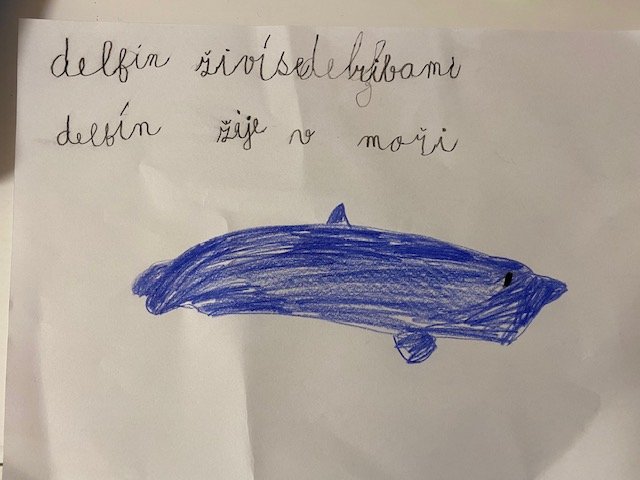 delfin živí se rybami
delfín žije v moři